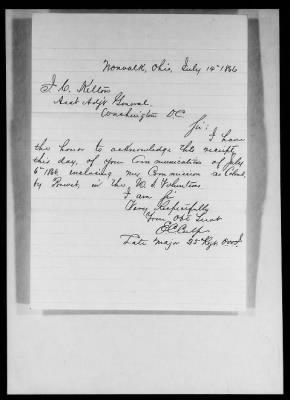 Norwalk, Ohio, July 14th 1866
J. C. Kelton
Asst Adjt General.
Washington D.C.
Sir:
I have
the honor to acknowledge the receipt,
this day, of your Communication of July
6th 1866 enclosing my Commission as Colonel
by Brevet, in the U. S. Volunteers
I am Sir
Very Respectfully
Your Obt Servt
E C Culp
Late Major 25th Regt O.V.I.